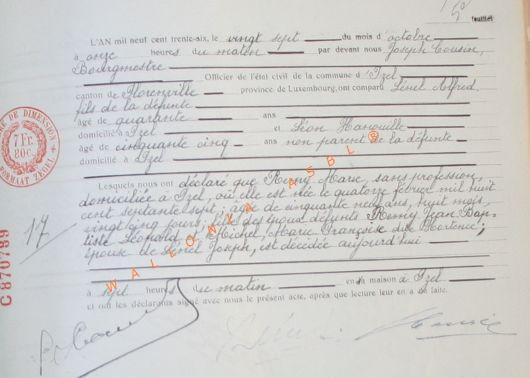 feuillet
L'AN mil neuf cent trente-six, le vingt sept du mois d'octobre
à onze heures du matin par devant nous Joseph Cousin,
Bourgmestre
Officier de l'état civil de la commune d'Izel
canton de Florenville province de Luxembourg, ont comparu Lénel Alfred
fils de la défunte
âgé de quarante ans
domicilié à Izel et Léon Hanouille
âgé de cinquante cinq ans non parent de la défunte
domicilié à Izel
Lesquels nous ont déclaré que Remy Marie, sans profession,
domiciliée à Izel, où elle est née le quatorze février mil huit
cent septante sept; âgée de cinquante neuf ans, huit mois,
vingt cinq jours; fille des époux défunts Remy Jean Bap-
tiste Léopold et Michel, Marie Françoise dite Hortence;
épouse de Lénel Joseph, est décédée aujourd'hui
à sept heures du matin en sa maison à Izel
et ont les déclarants signé avec nous le présent acte, après que lecture leur en a été faite.
RE DE DIMENSION
7 Fr.
80C.
FORMAAT ZEGEL
17
C870789
WALLONIA ASBL